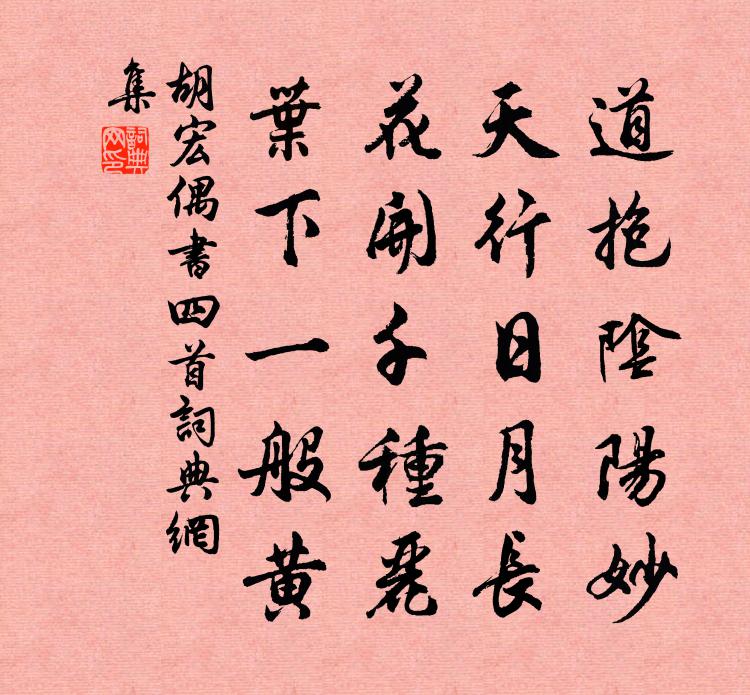 道抱陰陽妙
天行日月長
花開千種麗
葉下一般黃
胡宏偶書四首詞典網
集
詞典網印